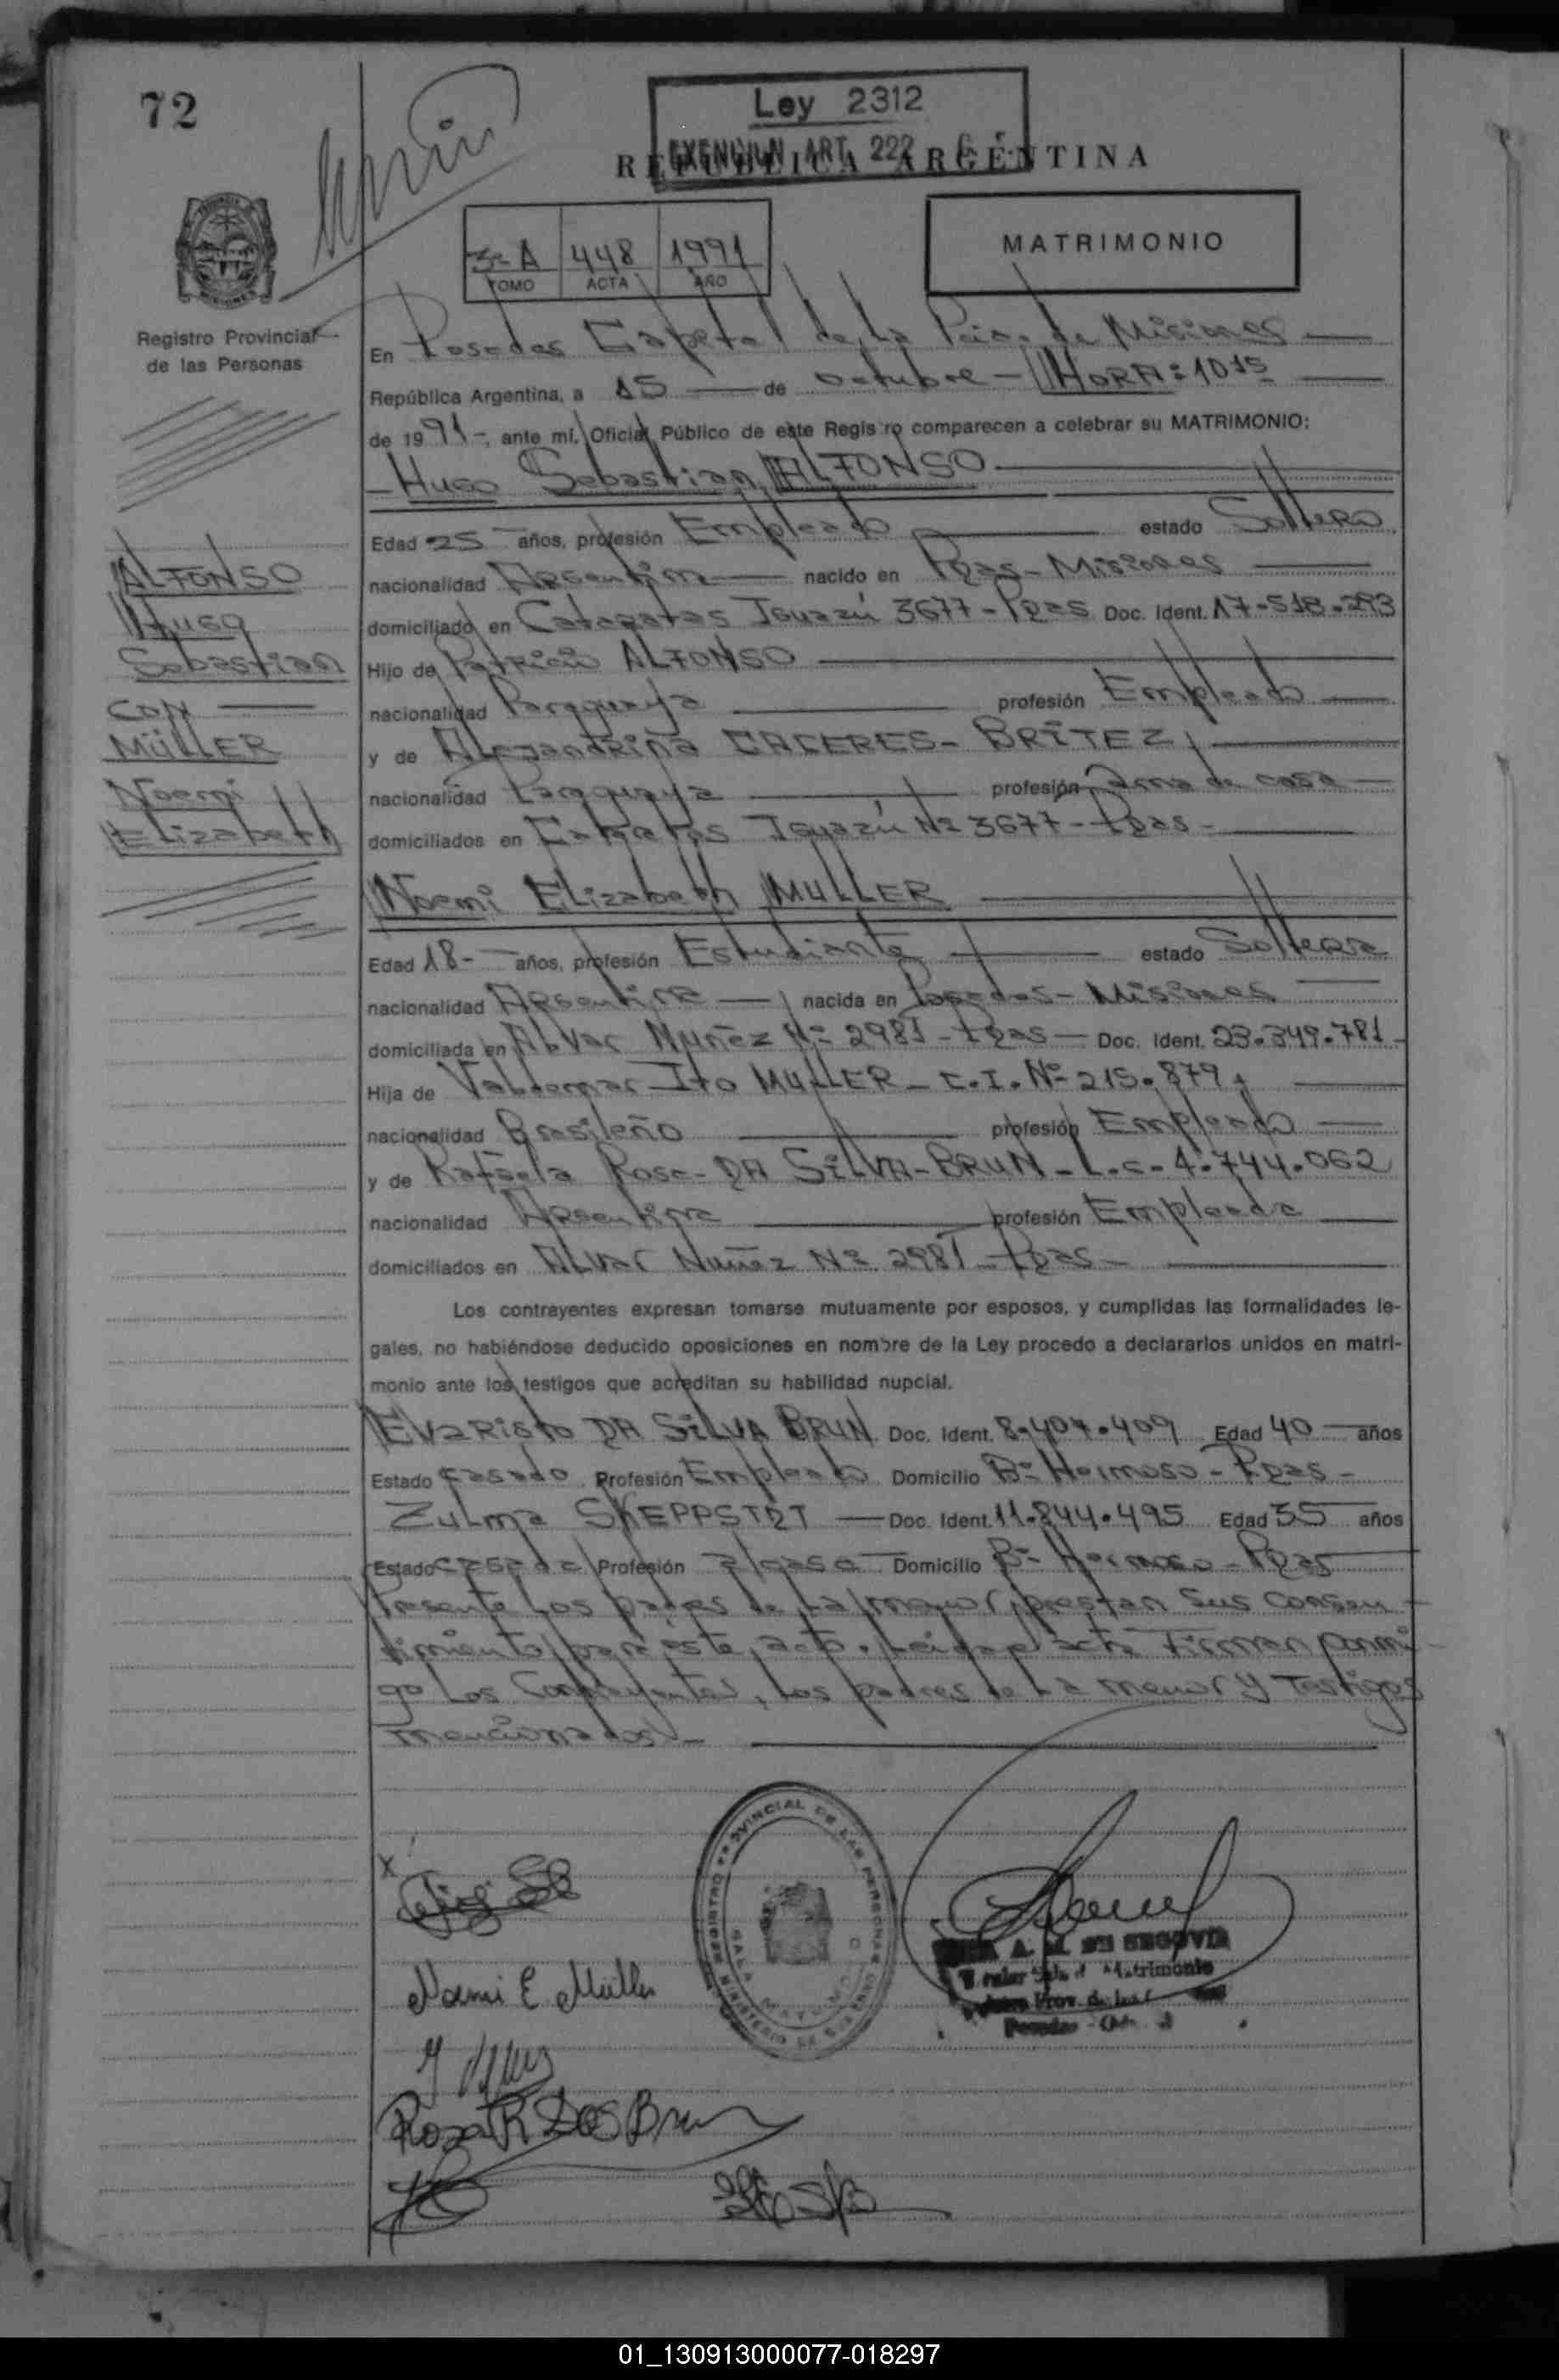 72
Ley 2312
EXENCION ART. 222
REPUBLICA ARGENTINA
3º A 448 1991
TOMO ACTA AÑO
MATRIMONIO
Registro Provincial
de las Personas
En Posadas Capital de la Pcia. de Misiones
República Argentina, a 15 de octubre - HORA: 10 15
de 1991-, ante mí, Oficial Público de este Registro comparecen a celebrar su MATRIMONIO:
Hugo Sebastian ALFONSO
Edad 25 años, profesión Empleado estado Soltero
nacionalidad Argentina nacido en Pdas - Misiones
domiciliado en Cataratas Iguazú 3677 - Pdas Doc. Ident. 17.518.293
Hijo de Patricio ALFONSO
nacionalidad Paraguaya profesión Empleado
y de Alejandrina CACERES - BRITEZ
nacionalidad Paraguaya profesión Ama de casa
domiciliados en Cataratas Iguazú Nº 3677 - Pdas -
ALFONSO
Hugo
Sebastian
CON
MÜLLER
Noemi
Elizabeth
Noemi Elizabeth MULLER
Edad 18 - años, profesión Estudiante estado Soltera
nacionalidad Argentina nacida en Posadas - Misiones
domiciliada en Alvar Nuñez Nº 2981 - Pdas - Doc. Ident. 23.349.781
Hija de Valdemar Ito MULLER - C.I. Nº 215.879
nacionalidad Brasileño profesión Empleado
y de Rafaela Rosa - DA SILVA - BRUN - L.C. 4.744.062
nacionalidad Argentina profesión Empleada
domiciliados en Alvar Nuñez Nº 2981 - Pdas -
Los contrayentes expresan tomarse mutuamente por esposos, y cumplidas las formalidades le-
gales, no habiéndose deducido oposiciones en nombre de la Ley procedo a declararlos unidos en matri-
monio ante los testigos que acreditan su habilidad nupcial.
Evaristo DA SILVA BRUN Doc. Ident. 8.407.409 Edad 40 años
Estado casado Profesión Empleado Domicilio Bº Hermoso - Pdas -
Zulma SKEPPSTDT Doc. Ident. 11.844.495 Edad 35 años
Estado casada Profesión a/casa Domicilio Bº Hermoso - Pdas
Presente los padres de la menor, prestan sus consen-
timiento para este acto. Leida el acta Firman conmi-
go los Contrayentes, los padres de la menor y Testigos
mencionados -
REGISTRO PROVINCIAL DE LAS PERSONAS
Noemi E. Müller
A. M. DE SEGOVIA
Matrimonio
Rosa R DaS Brun
01_130913000077-018297